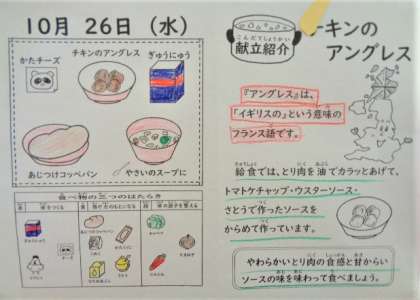 10月 26日（水）
かたチーズ
チキンのアングレス
ぎゅうにゅう
あじつけコッペパン
やさいのスープに
食べ物の三つのはたらき
こんだてしょうかい
献立紹介
チキンの
アングレス
『アングレス』は、
『イギリスの』という意味の
フランス語です。
給食では、とり肉を油でカラッとあげて、
トマトケチャップ・ウスターソース・
さとうで作ったソースを
からめて作っています。
やわらかいとり肉の食感と甘からい
ソースの味を味わって食べましょう。